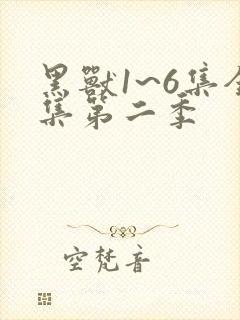 黑獸1~6集全
集第二季
空梵音